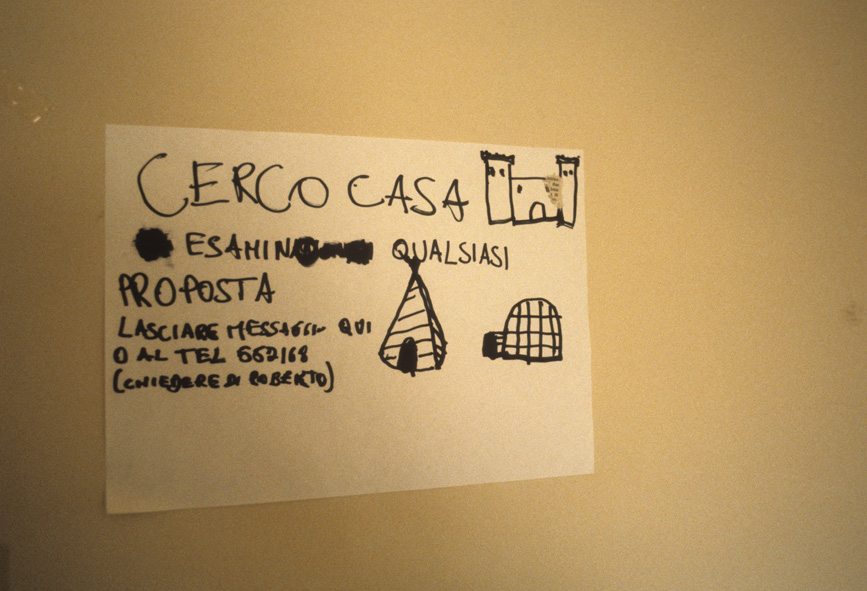 CERCO CASA
ESAMINO QUALSIASI
PROPOSTA
LASCIARE MESSAGGI QUI
O AL TEL 662168
(CHIEDERE DI ROBERTO)